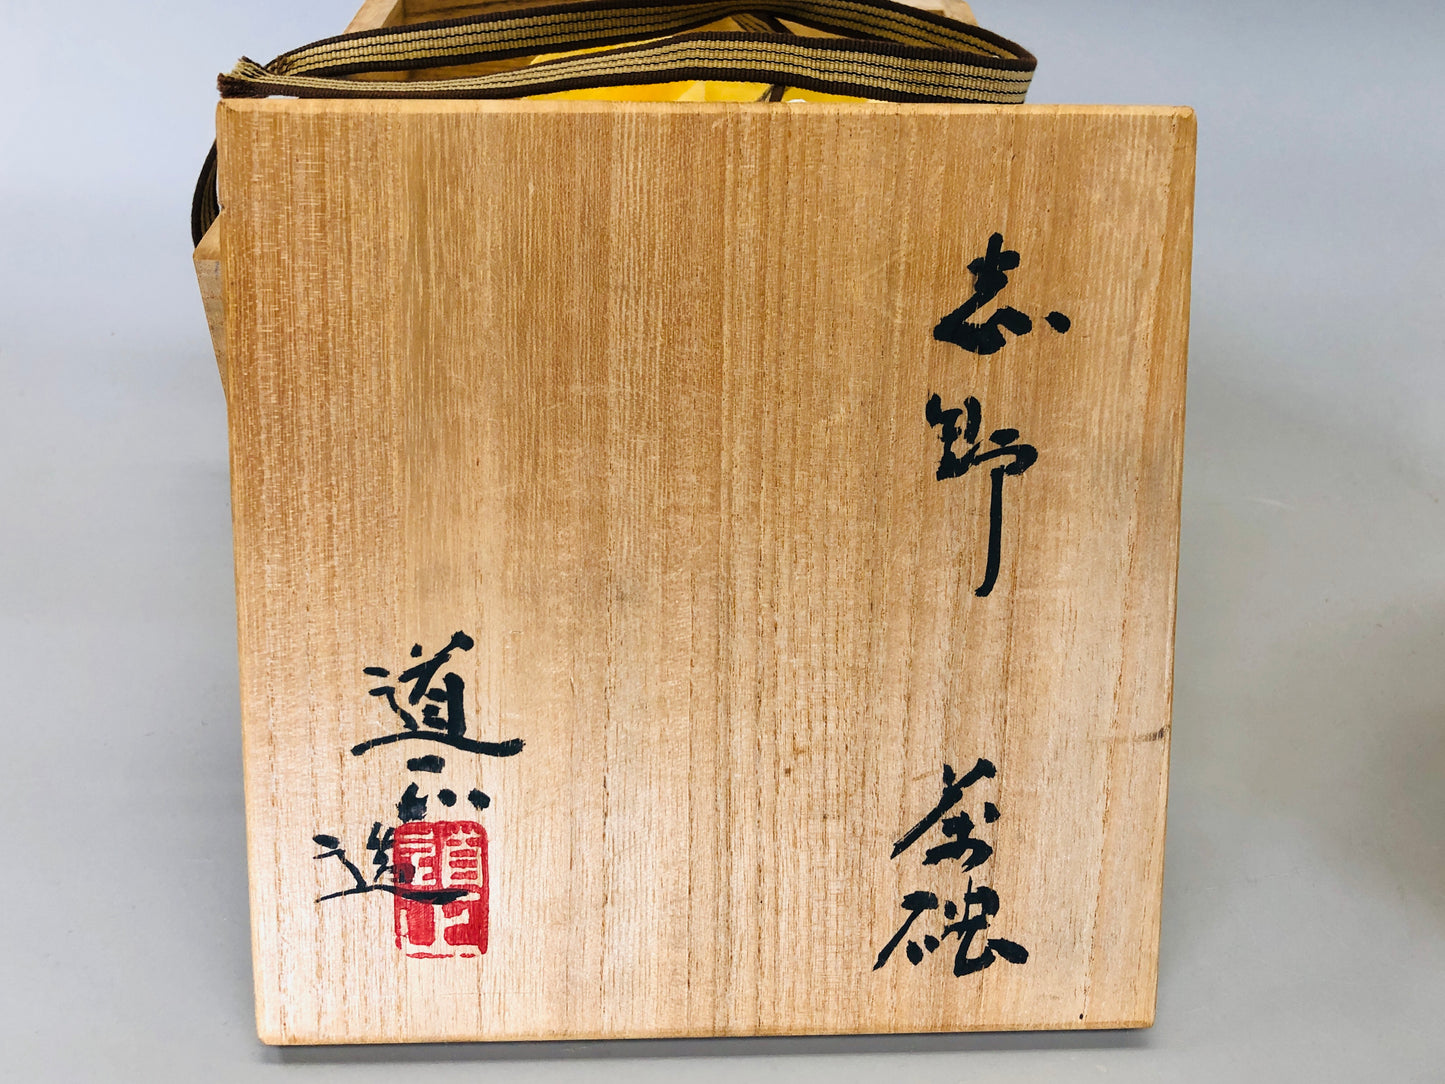 志野
茶碗
道正
造